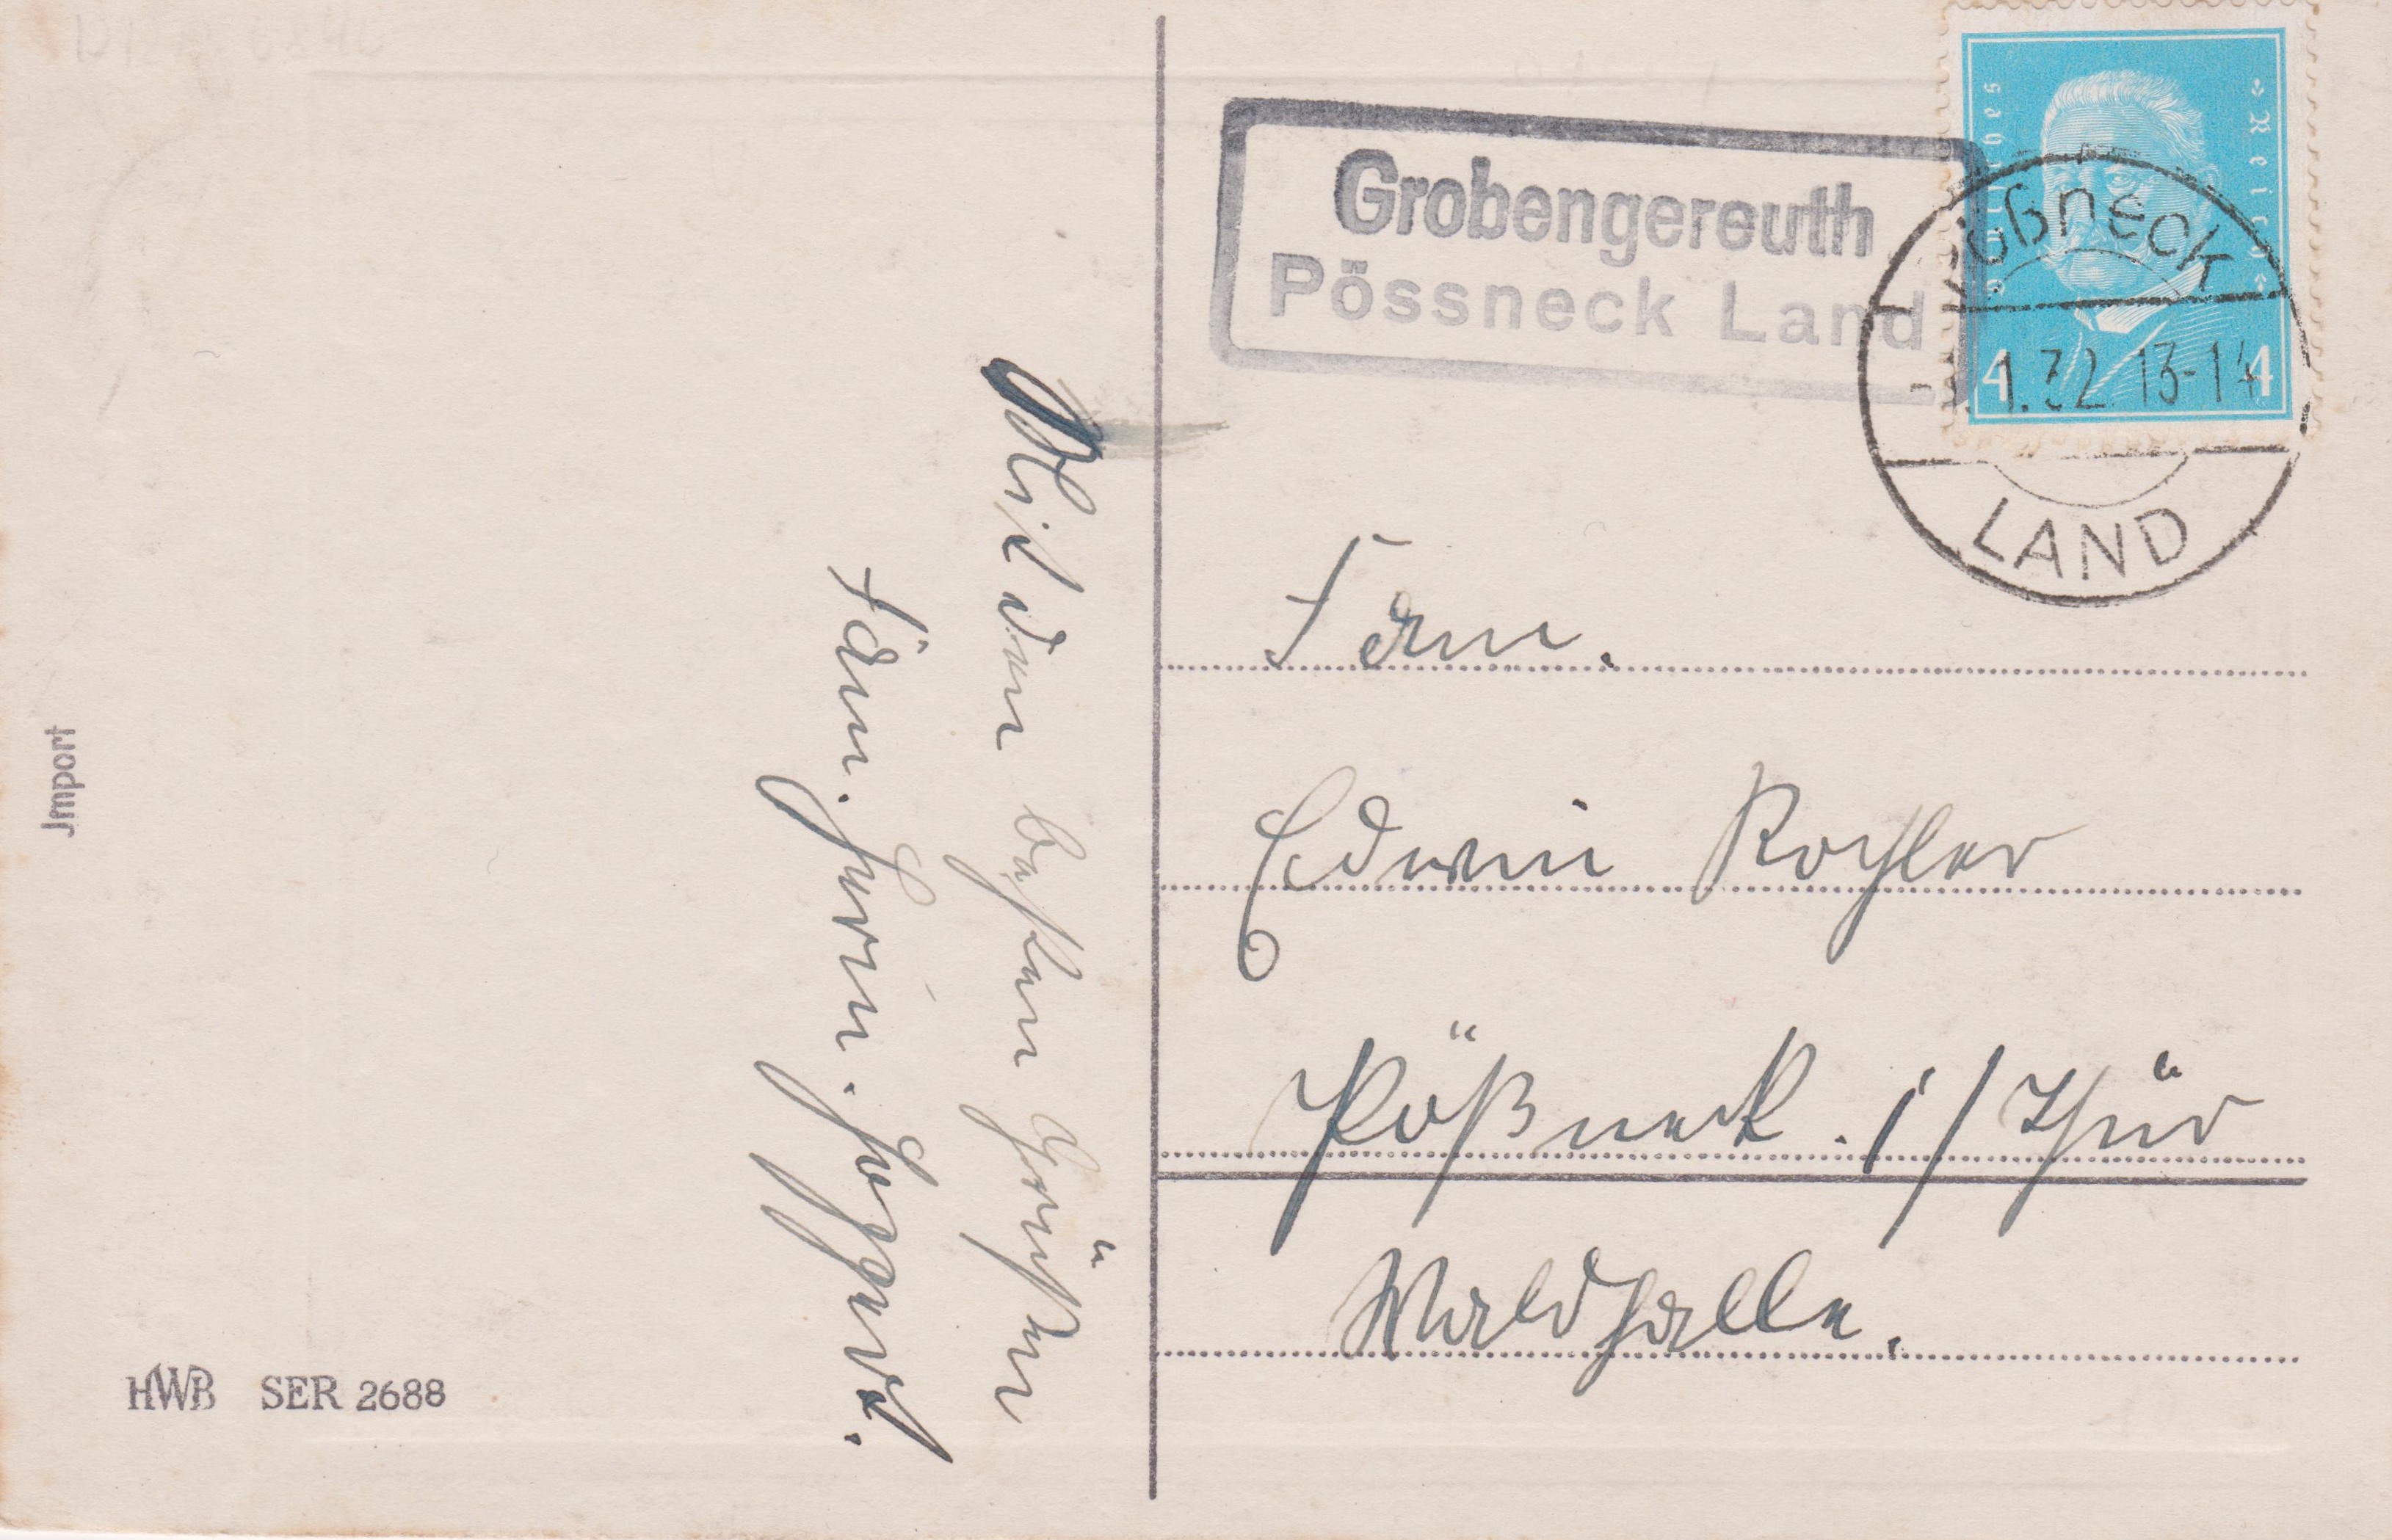 Grobengereuth
Pössneck Land
Deutsches Reich
4 4
PÖßNECK
1.32 13-14
LAND
Mit den besten Grüßen
Fam.
Fam.
Edwin
Pößneck. i/Thür
Waldhalle.
Jmport
HWB SER 2688